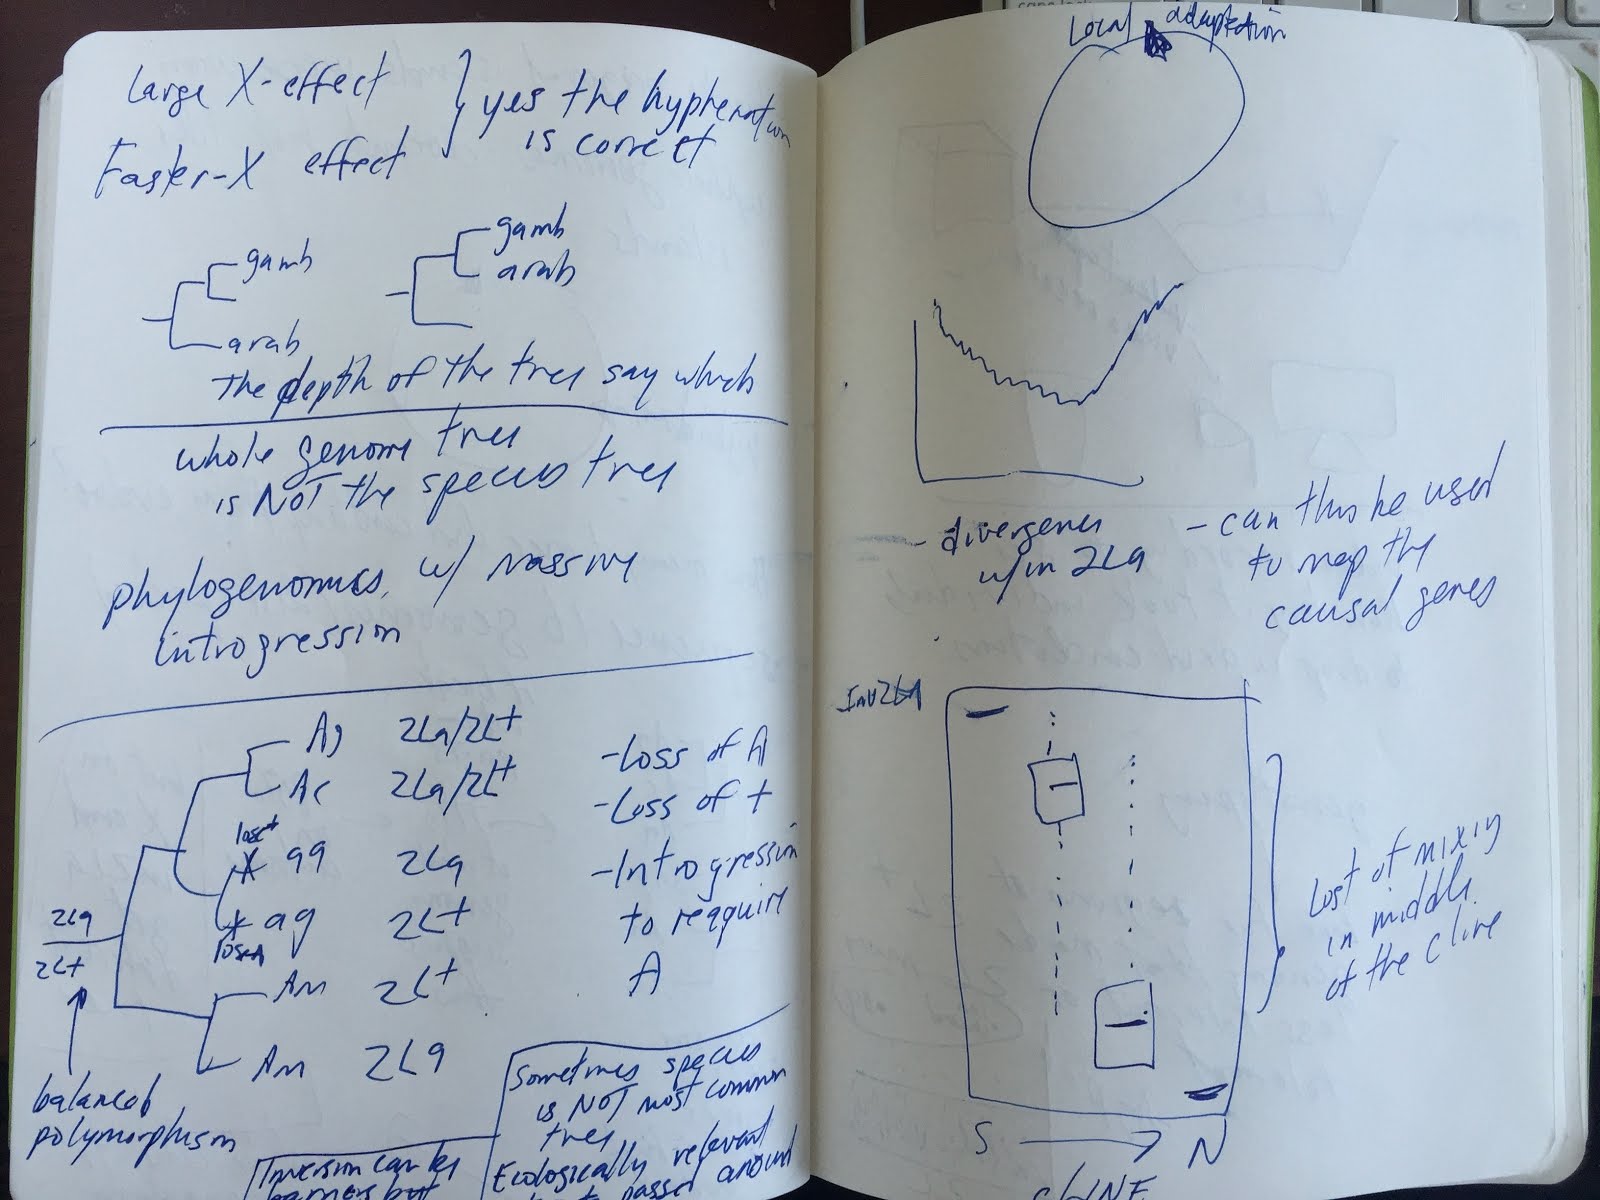 Large X-effect
Faster-X effect
yes the hyphenation
is correct
gamb
arab
gamb
arab
The depth of the tree say which
whole genome tree
is NOT the species tree
phylogenomics w/ massive
introgression
Ag 2La/2L+
Ac 2La/2L+
lose +
qq 2La
ag 2L+
lose A
Am 2L+
Am 2La
2La
2L+
balanced
polymorphism
-Loss of A
-Loss of +
-Introgression
to reaquire
A
Sometimes species
is NOT most common
tree
Ecologically relevant
passed around
Inversion can be
barriers but
Local adaptation
- divergence
w/in 2La
- can this be used
to map the
causal genes
Inv2La
Lost of mixing
in middle
of the cline
S N
CLINE